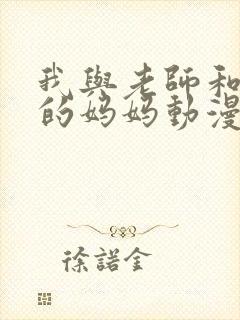 我與老師和
的媽媽動漫
徐諾金